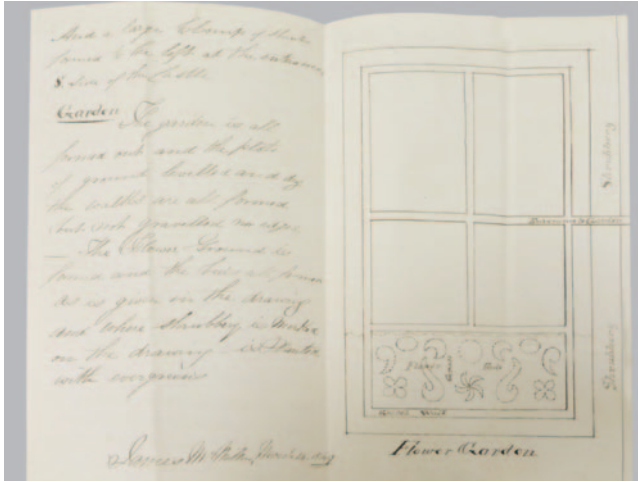 And a large Clump of
formed to be left at the
side of the Castle
Garden The garden is all
formed out and the plots
of ground levelled and dug
the walks are all formed
but not gravelled no edge
— The Flower Ground is
formed and the beds all formed
as is given in the drawing
and where shrubbery is
on the drawing is planted
with evergreens
James
Shrubbery
Shrubbery
Flower
Beds
Gravel Walk
Flower Garden